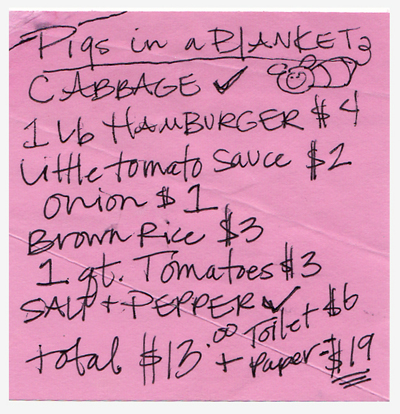 Pigs in a BLANKET
CABBAGE ✓
1 lb HAMBURGER $4
Little tomato sauce $2
onion $1
Brown Rice $3
1 qt. Tomatoes $3
SALT + PEPPER ✓
total $13.00 + Toilet Paper - $6
$19